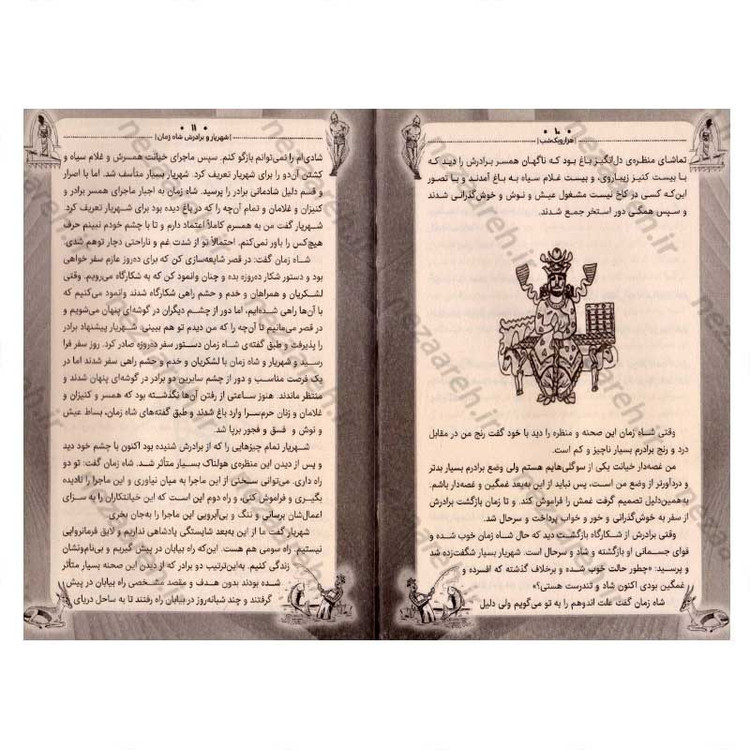 ۱۰
|هزار و یک شب|
تماشای منظره‌ی دل‌انگیز باغ بود که ناگهان همسر برادرش را دید که
با بیست کنیز زیباروی، و بیست غلام سیاه به باغ آمدند و با تصور
این‌که کسی در کاخ نیست مشغول عیش و نوش و خوش‌گذرانی شدند
و سپس همگی دور استخر جمع شدند.
وقتی شاه زمان این صحنه و منظره را دید با خود گفت رنج من در مقابل
درد و رنج برادرم بسیار ناچیز و کم است.
من غصه‌دار خیانت یکی از سوگلی‌هایم هستم ولی وضع برادرم بسیار بدتر
و دردآورتر از وضع من است، پس نباید از این به‌بعد غمگین و غصه‌دار باشم.
به‌همین‌دلیل تصمیم گرفت غمش را فراموش کند. و تا زمان بازگشت برادرش
از سفر به خوش‌گذرانی و خور و خواب پرداخت و سرحال شد.
وقتی برادرش از شکارگاه بازگشت دید که حال شاه زمان خوب شده و
قوای جسمانی او بازگشته و شاد و سرحال است. شهریار بسیار شگفت‌زده شد
و پرسید: «چطور حالت خوب شده و برخلاف گذشته که افسرده و
غمگین بودی اکنون شاد و تندرست هستی؟»
شاه زمان گفت علت اندوهم را به تو می‌گویم ولی دلیل
۱۱
|شهریار و برادرش شاه زمان|
شادی‌ام را نمی‌توانم بازگو کنم. سپس ماجرای خیانت همسرش و غلام سیاه و
کشتن آن‌دو را برای شهریار تعریف کرد. شهریار بسیار متأسف شد. اما با اصرار
و قسم دلیل شادمانی برادر را پرسید. شاه زمان به اجبار ماجرای همسر برادر و
کنیزان و غلامان و تمام آن‌چه را که در باغ دیده بود برای شهریار تعریف کرد.
شهریار گفت من به همسرم کاملاً اعتماد دارم و تا با چشم خودم نبینم حرف
هیچ‌کس را باور نمی‌کنم. احتمالاً تو از شدت غم و ناراحتی دچار توهم شدی.
شاه زمان گفت: در قصر شایعه‌سازی کن که برای ده‌روز عازم سفر خواهی
بود و دستور شکار ده‌روزه بده و چنان وانمود کن که به شکارگاه می‌رویم. وقتی
لشکریان و همراهان و خدم و حشم راهی شکارگاه شدند وانمود می‌کنیم که
با آن‌ها راهی شده‌ایم، اما دور از چشم دیگران در گوشه‌ای پنهان می‌شویم و
در قصر می‌مانیم تا آن‌چه را که من دیدم تو هم ببینی. شهریار پیشنهاد برادر
را پذیرفت و طبق گفته‌ی شاه زمان دستور سفر ده‌روزه صادر کرد. روز سفر فرا
رسید و شهریار و شاه زمان با لشکریان و خدم و حشم راهی سفر شدند اما در
یک فرصت مناسب و دور از چشم سایرین دو برادر در گوشه‌ای پنهان شدند و
منتظر ماندند. هنوز ساعتی از رفتن آن‌ها نگذشته بود که همسر و کنیزان و
غلامان و زنان حرم‌سرا وارد باغ شدند و طبق گفته‌های شاه زمان، بساط عیش
و نوش و فسق و فجور برپا شد.
شهریار تمام چیزهایی را که از برادرش شنیده بود اکنون با چشم خود دید
و پس از دیدن این منظره‌ی هولناک بسیار متأثر شد. شاه زمان گفت: تو دو
راه داری. می‌توانی سخنی از این ماجرا به میان نیاوری و این ماجرا را نادیده
بگیری و فراموش کنی، و راه دوم این است که این خیانتکاران را به سزای
اعمال‌شان برسانی و ننگ و بی‌آبرویی این ماجرا را به‌جان بخری
شهریار گفت ما از این به‌بعد شایستگی پادشاهی نداریم و لایق فرمانروایی
نیستیم. راه سومی هم هست. این‌که راه بیابان در پیش گیریم و بی‌نام‌ونشان
زندگی کنیم. به‌این‌ترتیب دو برادر که از دیدن این صحنه بسیار متأثر
شده بودند بدون هدف و مقصد مشخصی راه بیابان در پیش
گرفتند و چند شبانه‌روز در بیابان راه رفتند تا به ساحل دریای
nezaareh.ir